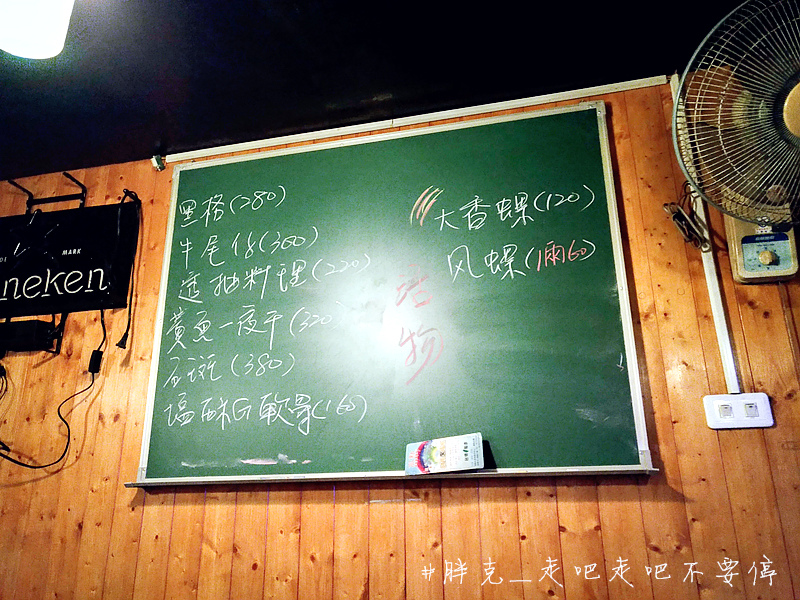 黑格(280)
牛尾仔(300)
透抽料理(220)
黃魚一夜干(320)
石斑(380)
塩酥G軟骨(160)
大香螺(120)
风螺(1兩60)
活物
MARK
neken
#胖克_走吧走吧不要停